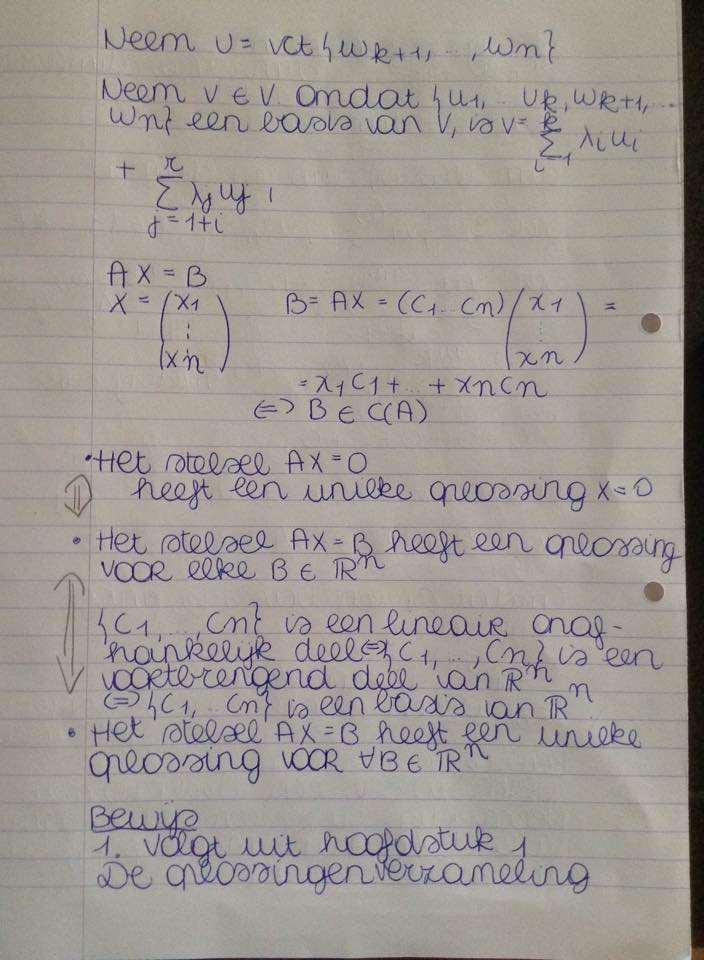 Neem U = vct {wk+1, ..., wn}
Neem v ∈ V. Omdat {u1, .. uk, wk+1, ..
wn} een basis van V, is v = k∑i=1 λi ui
+ r∑j=1+i λj uj
AX = B
X = (x1 ⋮ xn) B = AX = (C1 ... Cn) (x1 ⋮ xn) =
= x1C1 + ... + xnCn
⇔ B ∈ C(A)
• Het stelsel AX = 0
⇕ heeft een unieke oplossing X = 0
• Het stelsel AX = B heeft een oplossing
voor elke B ∈ ℝⁿ
⇕ {C1, ..., Cn} is een lineair onaf-
hankelijk deel ⇔ {C1, ..., Cn} is een
voortbrengend deel van ℝⁿ
⇔ {C1, ... Cn} is een basis van ℝⁿ
• Het stelsel AX = B heeft een unieke
oplossing voor ∀B ∈ ℝⁿ
Bewijs
1. Volgt uit hoofdstuk 1
De oplossingenverzameling